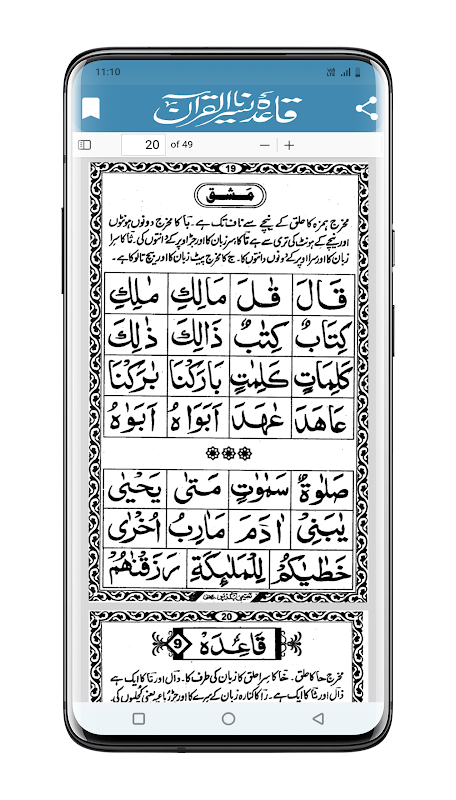 11:10
قاعدہ یسرنا القرآن
20 of 49
19
مشق
مخرج ہمزہ کا حلق کے نیچے سے ناف تک ہے۔ بؔا کا مخرج دونوں ہونٹوں
اور نیچے کے ہونٹ کی تری سے ہے تؔا کا سر زبان کا اور جڑ اوپر کے دانتوں کی۔ ثؔا کا سرا
زبان کا اور سرا اوپر کے دونوں دانتوں کا۔ جؔ کا مخرج بیٹ زبان کا اور بیچ تالو کا ہے۔
قَالَ قٰلَ مَالِكِ مٰلِكِ
كِتَابٌ كِتٰبٌ ذَالِكَ ذٰلِكَ
كَلِمَاتٍ كَلِمٰتٍ بَارَكْنَا بٰرَكْنَا
عَاهَدَ عٰهَدَ اَبَوَاهُ اَبَوٰهُ
صَلٰوةٌ سَمٰوٰتٍ مَتٰى يَحْيٰى
يٰبَنِيْ اٰدَمَ مَاٰرِبُ اُخْرٰى
خَطٰيٰكُمْ لِلْمَلٰٓئِكَةِ رَزَقْنٰهُمْ
20
قَاعِدَہ 9
مخرج حؔا کا حلق۔ خؔا کا سرا حلق کا زبان کی طرف کا۔ دؔال اور تؔا کا ایک ہے
ذؔال اور ثؔا کا ایک ہے۔ رؔا کا کنارہ زبان کے سرے کا اور جڑ رباعیہ یعنی کچلیوں کی